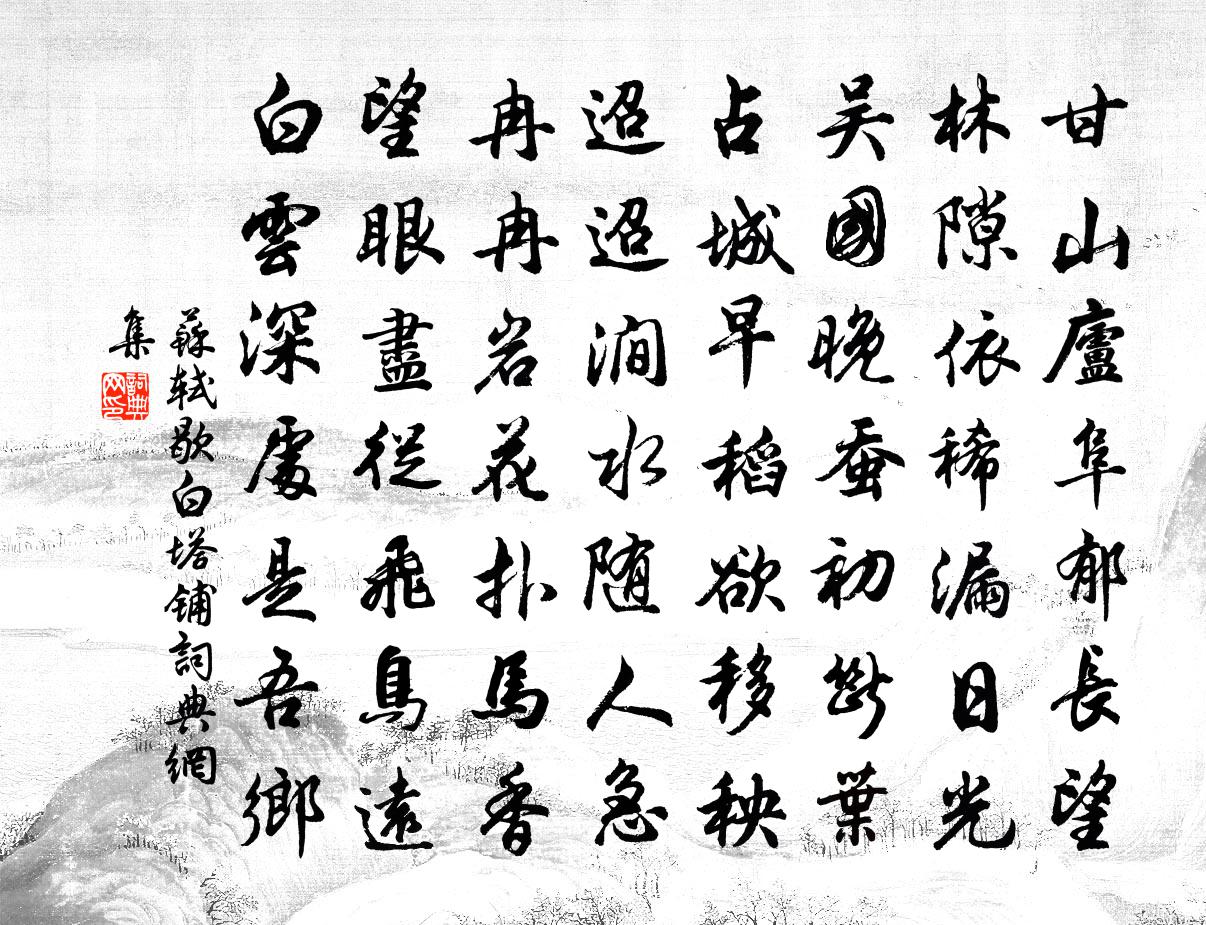 甘山廬阜郁長望
林隙依稀漏日光
吴國晚蚕初斷葉
占城早稻欲移秧
迢迢澗水随人急
冉冉岩花扑馬香
望眼盡從飛鳥遠
白雲深處是吾鄉
蘇軾歇白塔鋪詞典網
集
詞典網印